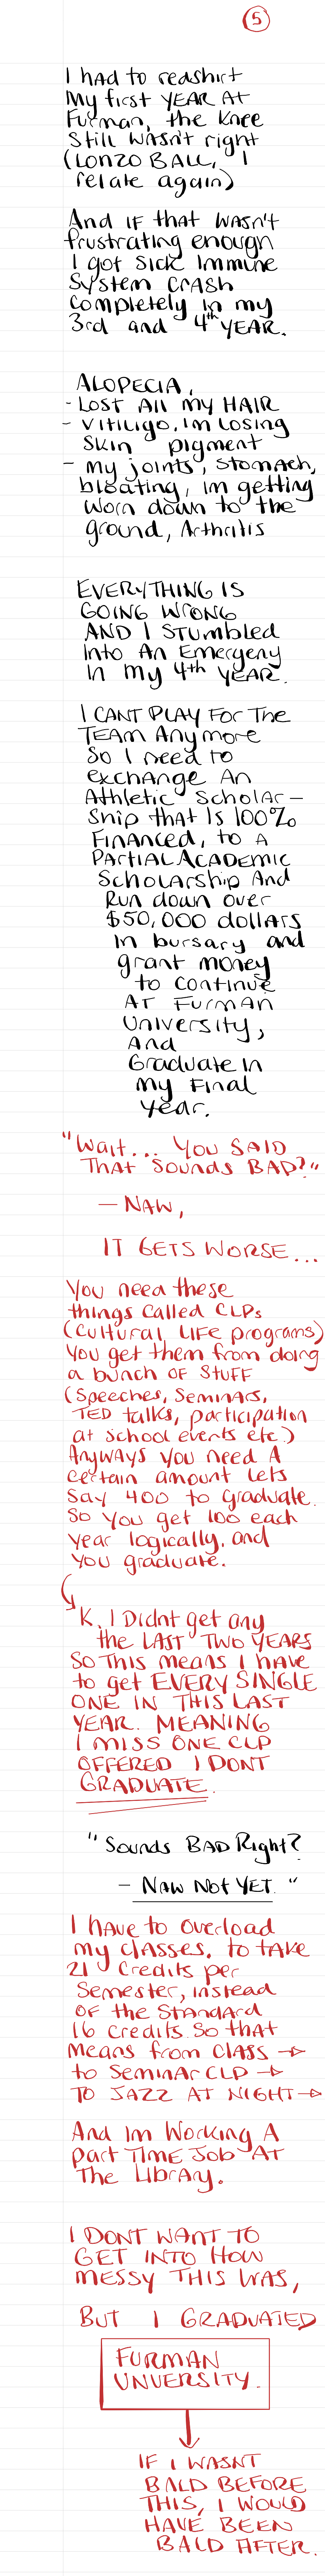 5
I had to redshirt
My first YEAR AT
Furman, the knee
Still wasn't right
(LONZO BALL, I
relate again)
And IF that wasn't
frustrating enough
I got sick Immune
System crash
completely in my
3rd and 4th YEAR.
ALOPECIA,
- Lost All my HAIR
- Vitiligo, I'm losing
Skin pigment
- my joints, stomach,
bloating, im getting
worn down to the
ground, Arthritis
EVERYTHING IS
GOING WRONG
AND I STumbled
into An Emergeny
In my 4th YEAR.
I CANT PLAY FOR The
TEAM Anymore
So I need to
exchange An
Athletic Scholar-
Ship that Is 100%
Financed, to A
PARtiAL ACADEMIC
Scholarship And
Run down over
$50,000 dollars
In bursary and
grant money
to continue
AT Furman
University,
And
Graduate In
my Final
year.
"Wait... You SAID
THAT Sounds BAD?"
- NAW,
IT GETS WORSE...
You need these
things called CLPs
(Cultural LIFE programs)
You get them from doing
a bunch OF STUFF
(Speeches, Seminars,
TED talks, participation
at School events etc.)
Anyways you need A
certain amount lets
Say 400 to graduate.
So you get 100 each
year logically, and
you graduate.
K, I Didnt get any
the LAST TWO YEARS
So This means I have
to get EVERY SINGLE
ONE IN THIS LAST
YEAR. MEANING
I MISS ONE CLP
OFFERED I DONT
GRADUATE.
"Sounds BAD Right?
- NAW NOT YET. "
I have to overload
my classes, to take
21 Credits per
Semester, instead
OF the Standard
16 credits. So that
means from CLASS →
to Seminar CLP →
TO JAZZ AT NIGHT →
And Im Working A
part TIME JOB AT
The Library.
I DONT WANT TO
GET INTO HOW
MESSY THIS WAS,
BUT I GRADUATED
FURMAN
UNVERSITY.
IF I WASNT
BALD BEFORE
THIS, I WOULD
HAVE BEEN
BALD AFTER.